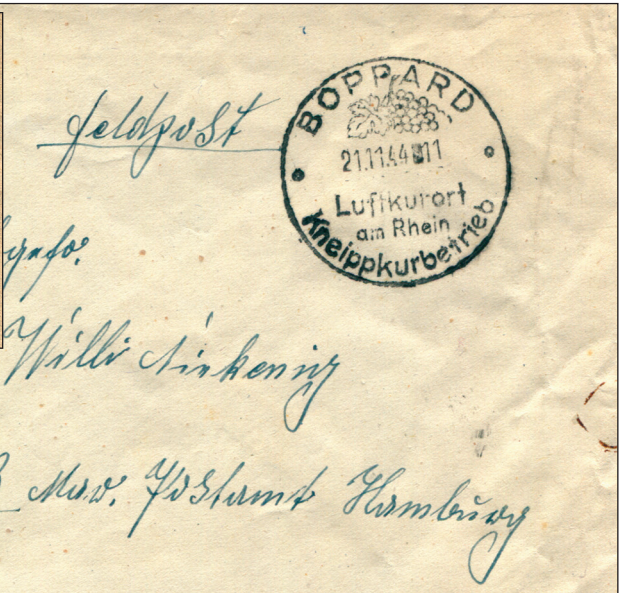 Feldpost
BOPPARD
21.11.44 11
Luftkurort
am Rhein
Kneippkurbetrieb
Willi
Mar. Postamt Hamburg